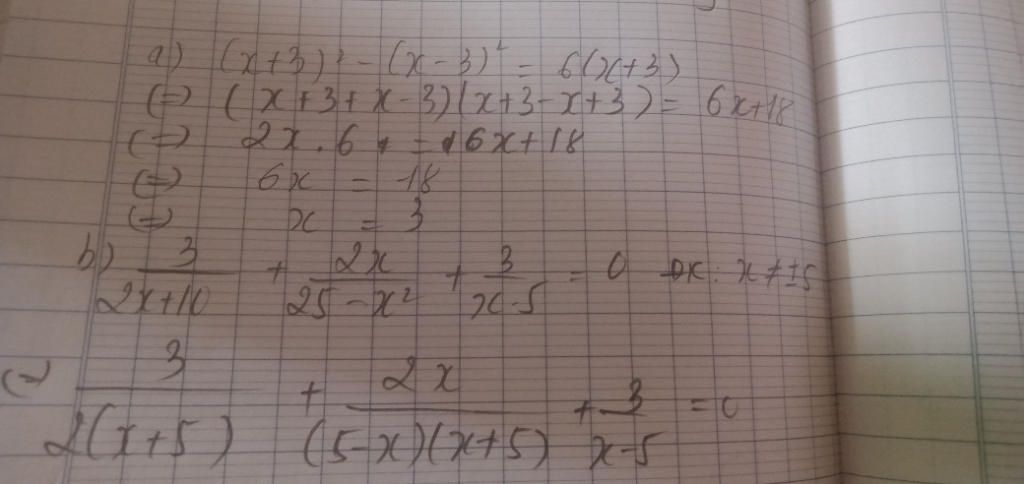 a) (x+3)² - (x-3)² = 6(x+3)
(=) (x+3+x-3)(x+3-x+3) = 6x+18
(=) 2x.6 = 6x+18
(=) 6x = 18
(=) x = 3
b) 3/(2x+10) + 2x/(25-x²) + 3/(x-5) = 0 ĐK: x≠±5
(=) 3/(2(x+5)) + 2x/((5-x)(x+5)) + 3/(x-5) = 0